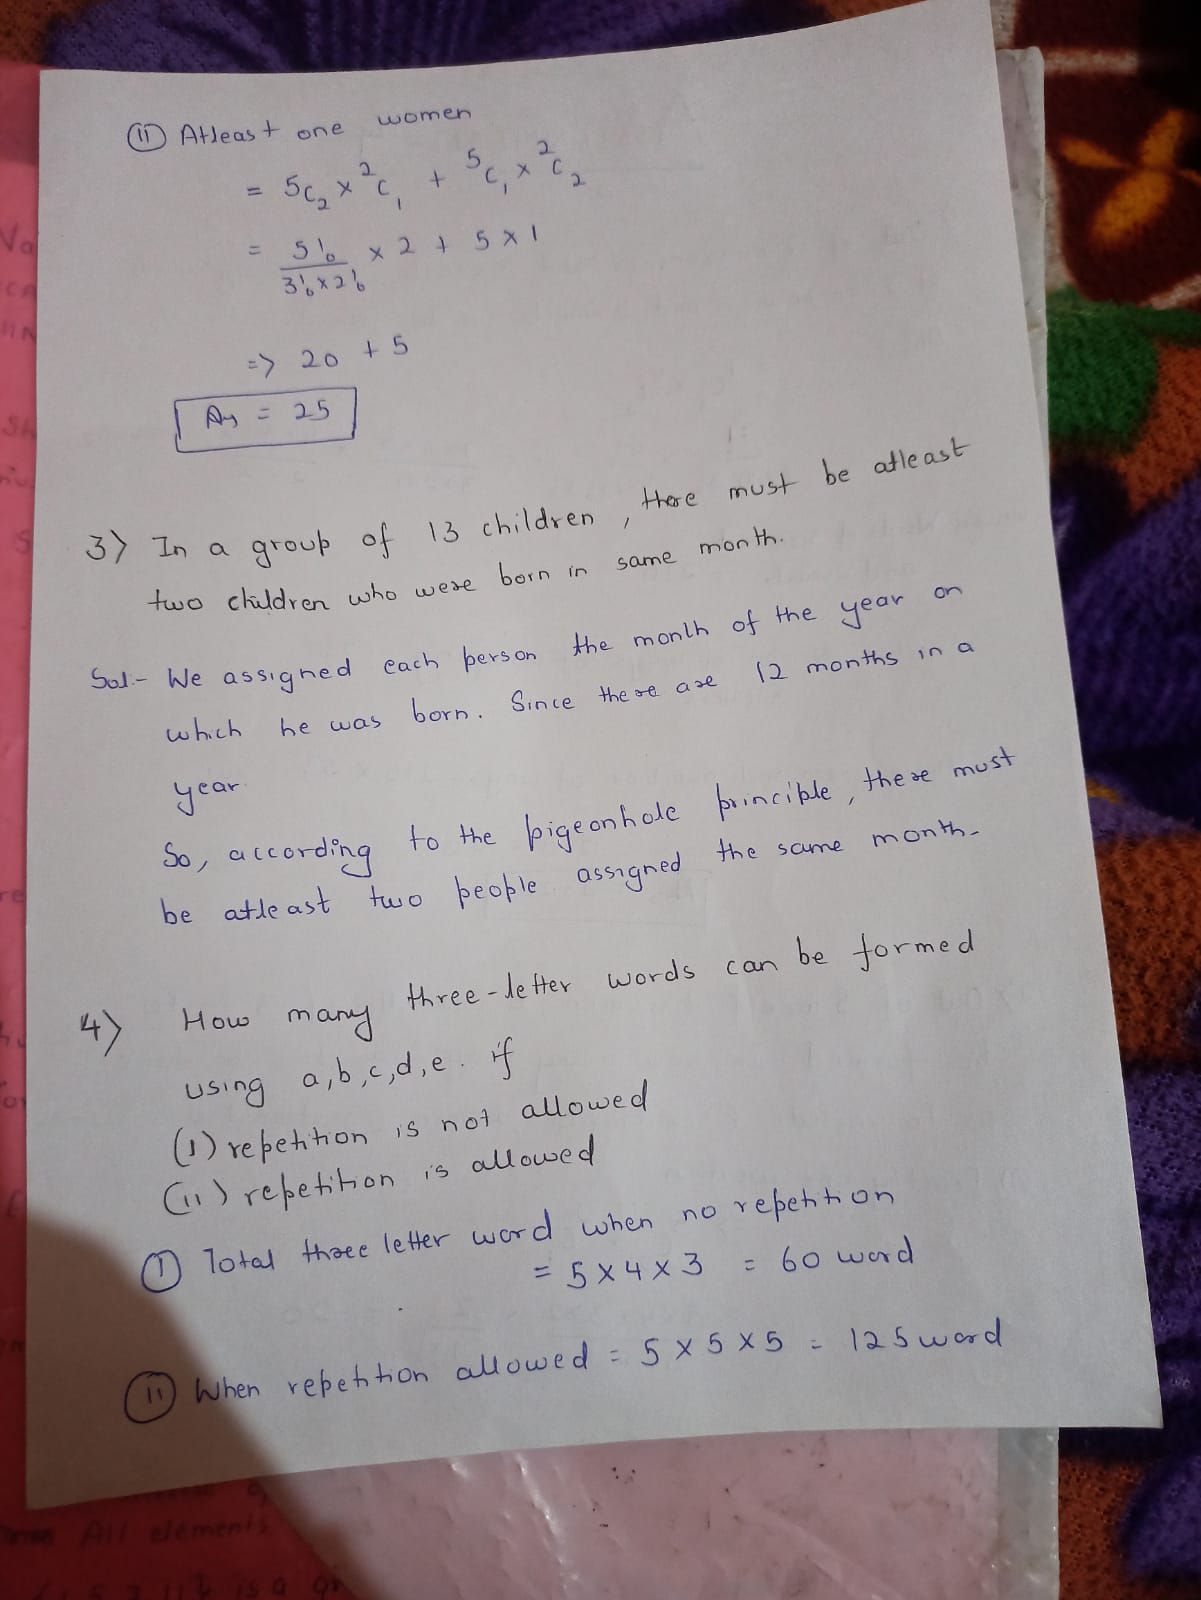 (ii) Atleast one women
= 5c₂ × ²c₁ + ⁵c₁ × ²c₂
= 5!/3!×2! × 2 + 5 × 1
=> 20 + 5
Ans = 25
3) In a group of 13 children, there must be atleast
two children who were born in same month.
Sol:- We assigned each person the month of the year on
which he was born. Since there are 12 months in a
year.
So, according to the pigeonhole principle, there must
be atleast two people assigned the same month.
4) How many three-letter words can be formed
using a,b,c,d,e. if
(i) repetition is not allowed
(ii) repetition is allowed
(i) Total three letter word when no repetition
= 5 × 4 × 3 = 60 word
(ii) When repetition allowed = 5 × 5 × 5 = 125 word
All elements